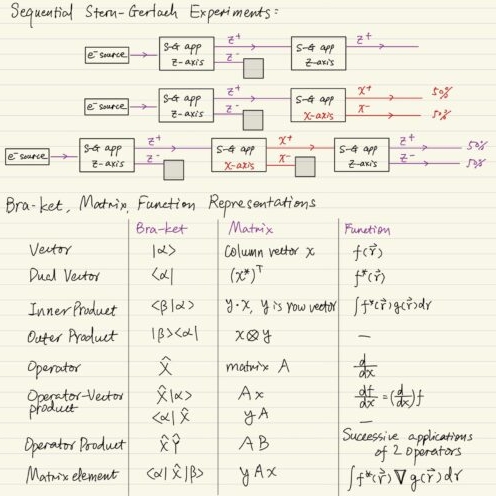 Sequential Stern-Gerlach Experiments:
e⁻ source S-G app z-axis z+ z- S-G app z-axis z+
e⁻ source S-G app z-axis z+ z- S-G app x-axis x+ x- 50% 50%
e⁻ source S-G app z-axis z+ z- S-G app x-axis x+ x- S-G app z-axis z+ z- 50% 50%
Bra-ket, Matrix, Function Representations
Bra-ket Matrix Function
Vector |α> Column vector x f(r⃗)
Dual Vector <α| (x*)ᵀ f*(r⃗)
Inner Product <β|α> y·x, y is row vector ∫f*(r⃗)g(r⃗)dr
Outer Product |β><α| x⊗y —
Operator X̂ matrix A d/dx
Operator-Vector product X̂|α> Ax df/dx = (d/dx)f
<α|X̂ yA —
Operator Product X̂Ŷ AB Successive applications of 2 Operators
Matrix element <α|X̂|β> yAx ∫f*(r⃗)∇g(r⃗)dr